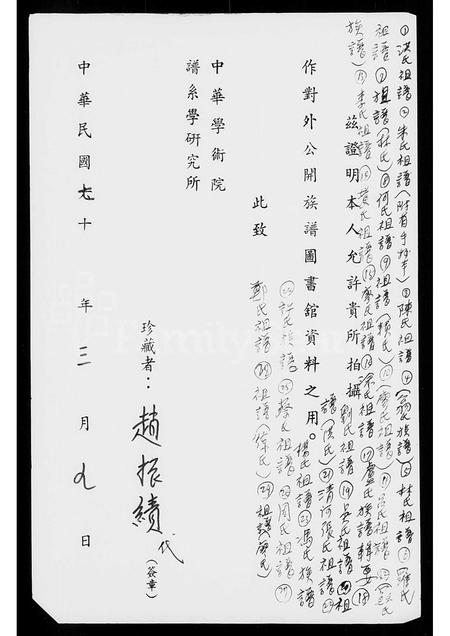 ①洪氏祖譜②朱氏祖譜(附有手抄本)③陳氏祖譜④(翁)氏族譜⑤林氏祖譜⑥(羅氏
祖譜⑦祖譜(林氏)⑧何氏祖譜⑨祖譜(賴氏)⑩(廖氏)祖譜⑪呂氏祖譜⑫
族譜)⑬李氏祖譜⑭黃氏祖譜⑮祖譜⑯涂氏祖譜⑰盧氏族譜輯要⑱
茲證明本人允許貴所拍攝
劉氏祖譜⑲吳氏祖譜⑳祖
譜(洪氏)㉑清河張氏祖譜㉒
作對外公開族譜圖書館資料之用。
楊氏祖譜㉓馮氏族譜
㉔許氏族譜㉕蔡氏祖譜㉖周氏祖譜㉗
此致
鄭氏祖譜㉘祖譜(徐氏)㉙祖譜
中華學術院
譜系學研究所
珍藏者：趙振績代(簽章)
中華民國七十年三月九日
FamilySearch